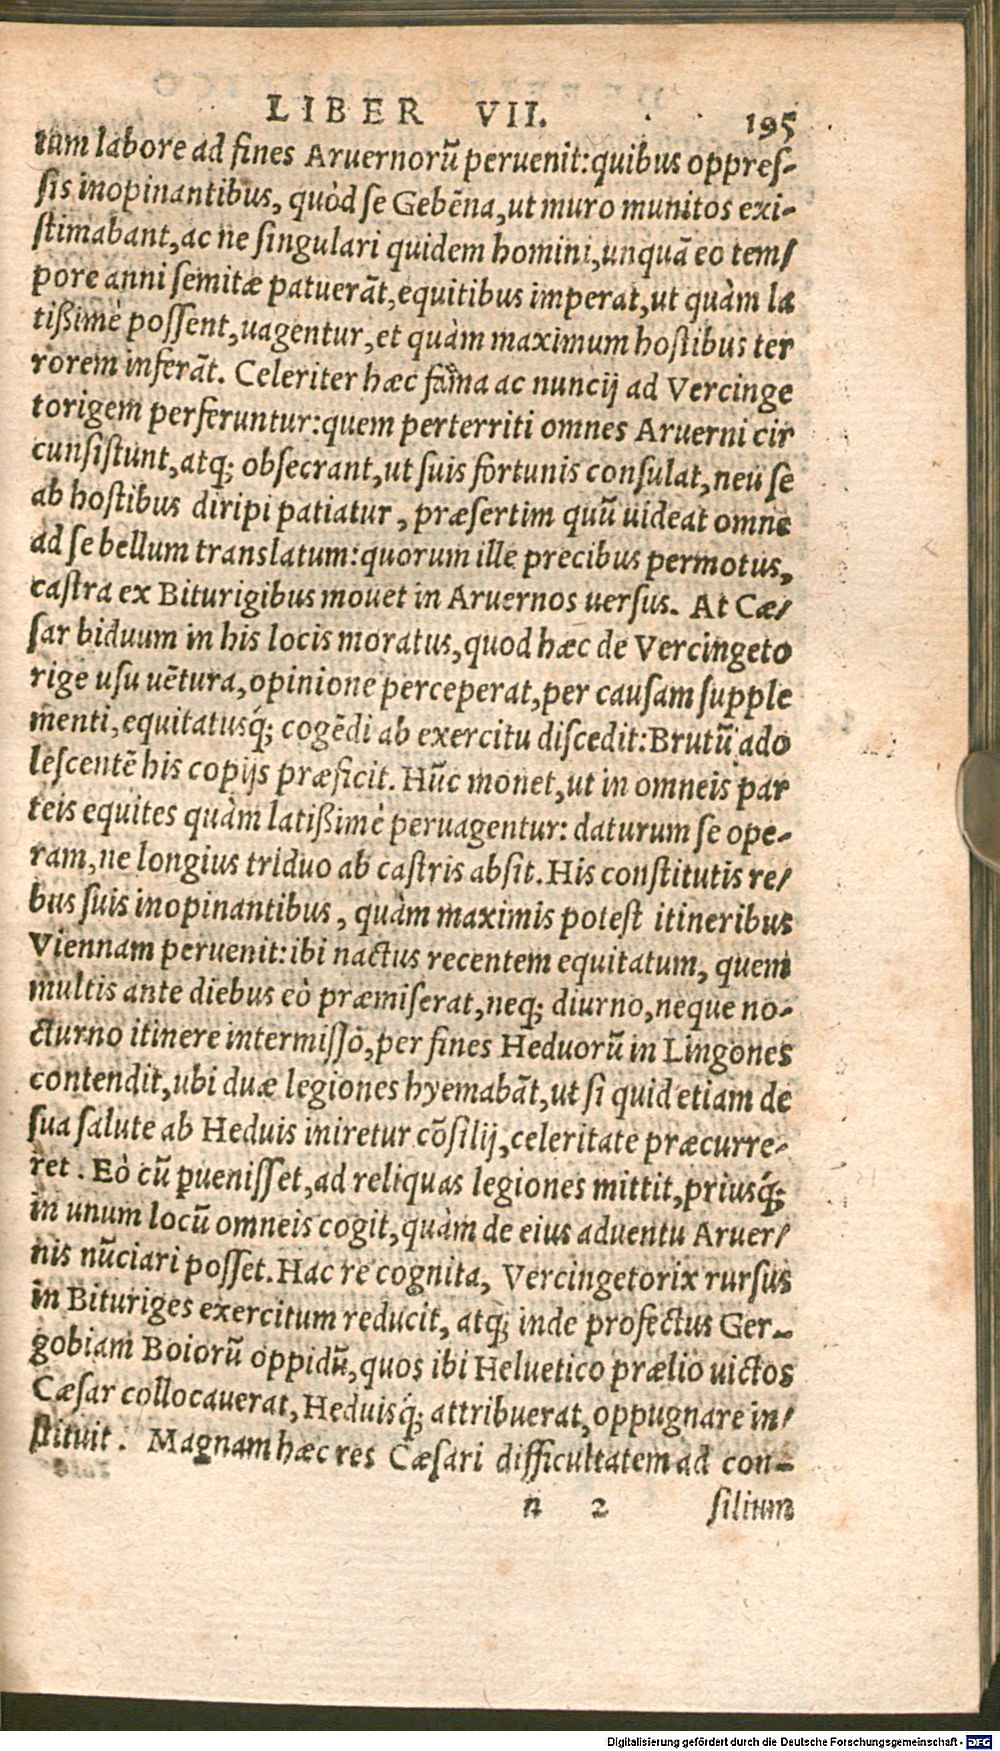 LIBER VII. 195
tum labore ad fines Aruernorũ peruenit:quibus oppreſ-
ſis inopinantibus, quòd ſe Gebẽna,ut muro munitos exi-
ſtimabant,ac ne ſingulari quidem homini,unquã eo tem/
pore anni ſemitæ patuerãt,equitibus imperat,ut quàm la
tißimè poſſent,uagentur,et quàm maximum hoſtibus ter
rorem inferãt. Celeriter hæc fama ac nuncij ad Vercinge
torigem perferuntur:quem perterriti omnes Aruerni cir
cunſiſtunt,atq; obſecrant,ut ſuis fortunis conſulat,neu ſe
ab hoſtibus diripi patiatur, præſertim quũ uideat omne
ad ſe bellum translatum:quorum ille precibus permotus,
caſtra ex Biturigibus mouet in Aruernos uerſus. At Cæ/
ſar biduum in his locis moratus,quod hæc de Vercingeto
rige uſu uẽtura,opinione perceperat,per cauſam ſupple
menti,equitatusq́; cogẽdi ab exercitu diſcedit:Brutũ ado
leſcentẽ his copijs præficit. Hũc monet,ut in omneis par
teis equites quàm latißimè peruagentur: daturum ſe ope-
ram,ne longius triduo ab caſtris absit. His conſtitutis re/
bus ſuis inopinantibus, quàm maximis poteſt itineribus
Viennam peruenit:ibi nactus recentem equitatum, quem
multis ante diebus eò præmiſerat,neq; diurno,neque no-
cturno itinere intermiſſo,per fines Heduorũ in Lingones
contendit,ubi duæ legiones hyemabãt,ut ſi quid etiam de
ſua ſalute ab Heduis iniretur cõſilij,celeritate præcurre-
ret. Eò cũ ꝑueniſſet,ad reliquas legiones mittit,priusq́;
in unum locũ omneis cogit,quàm de eius aduentu Aruer/
nis nũciari poſſet. Hac re cognita, Vercingetorix rurſus
in Bituriges exercitum reducit, atq; inde profectus Ger-
gobiam Boiorũ oppidũ,quos ibi Heluetico prælio uictos
Cæſar collocauerat,Heduisq́; attribuerat,oppugnare in/
ſtituit. Magnam hæc res Cæſari difficultatem ad con-
n 2 ſilium
Digitalisierung gefördert durch die Deutsche Forschungsgemeinschaft - DFG